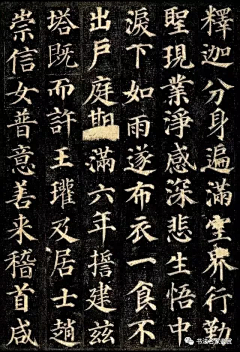 釋迦分身遍滿空界行勤
聖現業淨感深悲生悟中
淚下如雨遂布衣一食不
出戶庭期滿六年誓建茲
塔既而許王瓘及居士趙
崇信女普意善來稽首咸